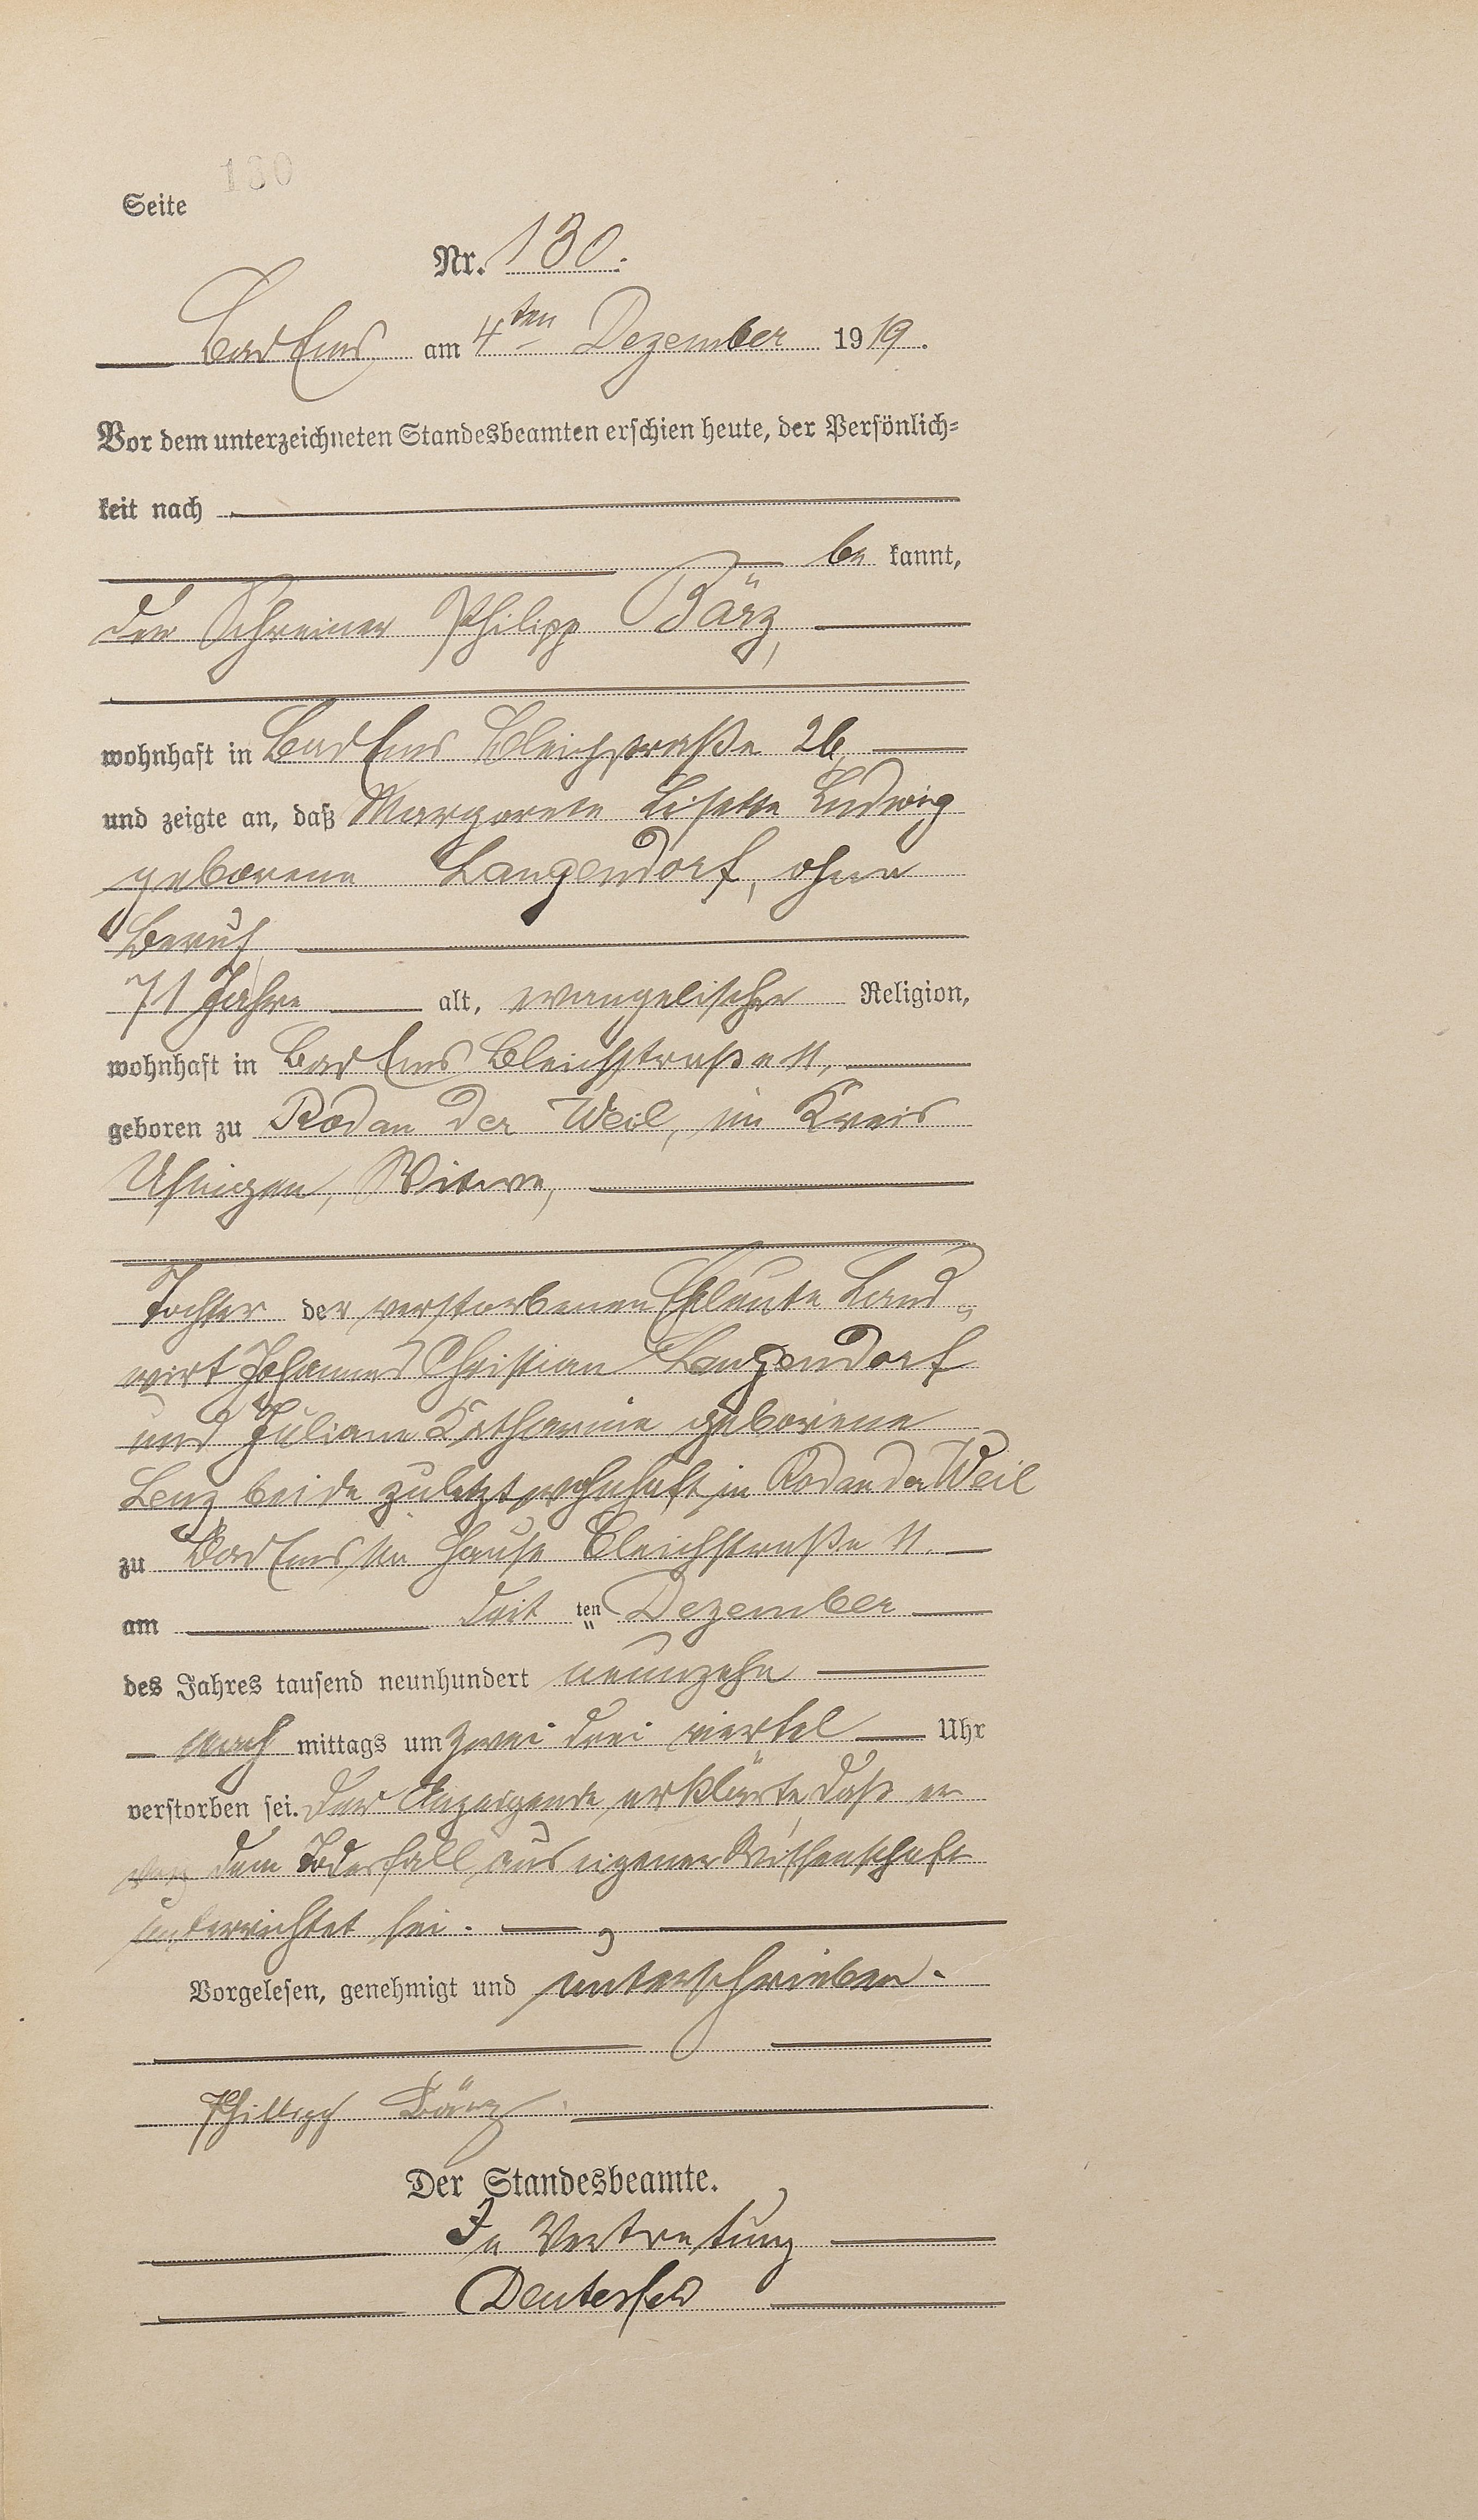 130
Seite
Nr. 130.
Bad Ems am 4ten Dezember 1919.
Vor dem unterzeichneten Standesbeamten erschien heute, der Persönlich-
keit nach
be kannt,
der Schreiner Philipp Bärz,
wohnhaft in Bad Ems Bleichstraße 26,
und zeigte an, daß Margarete Lisette Ludwig
geborene Langendorf, ohne
Beruf,
71 Jahre alt, evangelischer Religion,
wohnhaft in Bad Ems Bleichstraße 11,
geboren zu Rod an der Weil, im Kreis
Usingen, Witwe,
Tochter der verstorbenen Eheleute Land-
wirt Johannes Christian Langendorf
und Juliane Katharine geborene
Lenz beide zuletzt wohnhaft in Rod an der Weil
zu Bad Ems im Hause Bleichstraße 11.
am drit ten Dezember
des Jahres tausend neunhundert neunzehn
nach mittags um zwei drei viertel Uhr
verstorben sei. Der Anzeigende erklärte, daß er
von dem Todesfall aus eigener Wissenschaft
unterrichtet sei.
Vorgelesen, genehmigt und unterschrieben.
Philipp Bärz
Der Standesbeamte.
In Vertretung